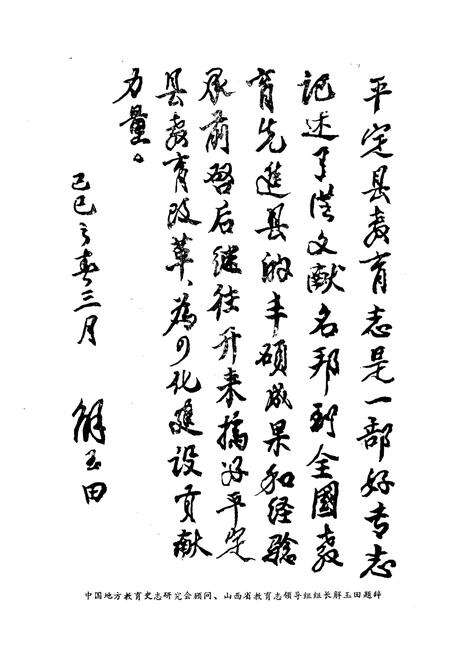 平定县教育志是一部好专志
记述了从文献名邦到全國教
育先進县的丰硕成果和经验
承前啓后继往开来搞好平定
县教育改革、為四化建设贡献
力量。
己巳之春三月
解玉田
中国地方教育史志研究会顾问、山西省教育志领导组组长解玉田题辞